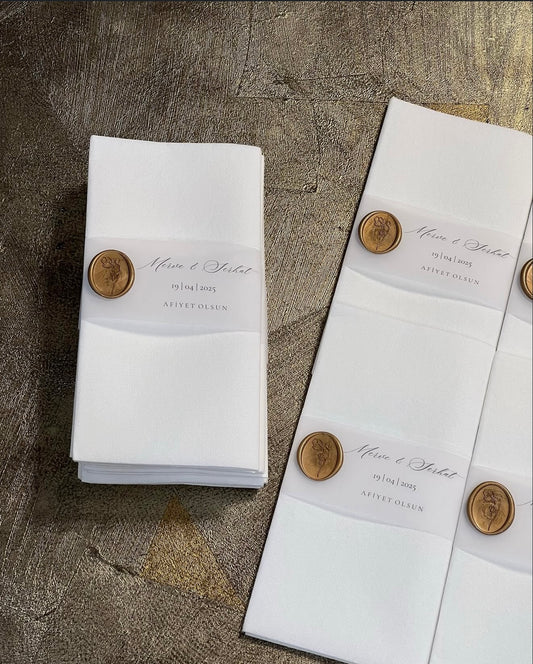 Merve & Serhat
19 | 04 | 2025
AFİYET OLSUN
Merve & Serhat
19 | 04 | 2025
AFİYET OLSUN
Merve & Serhat
19 | 04 | 2025
AFİYET OLSUN